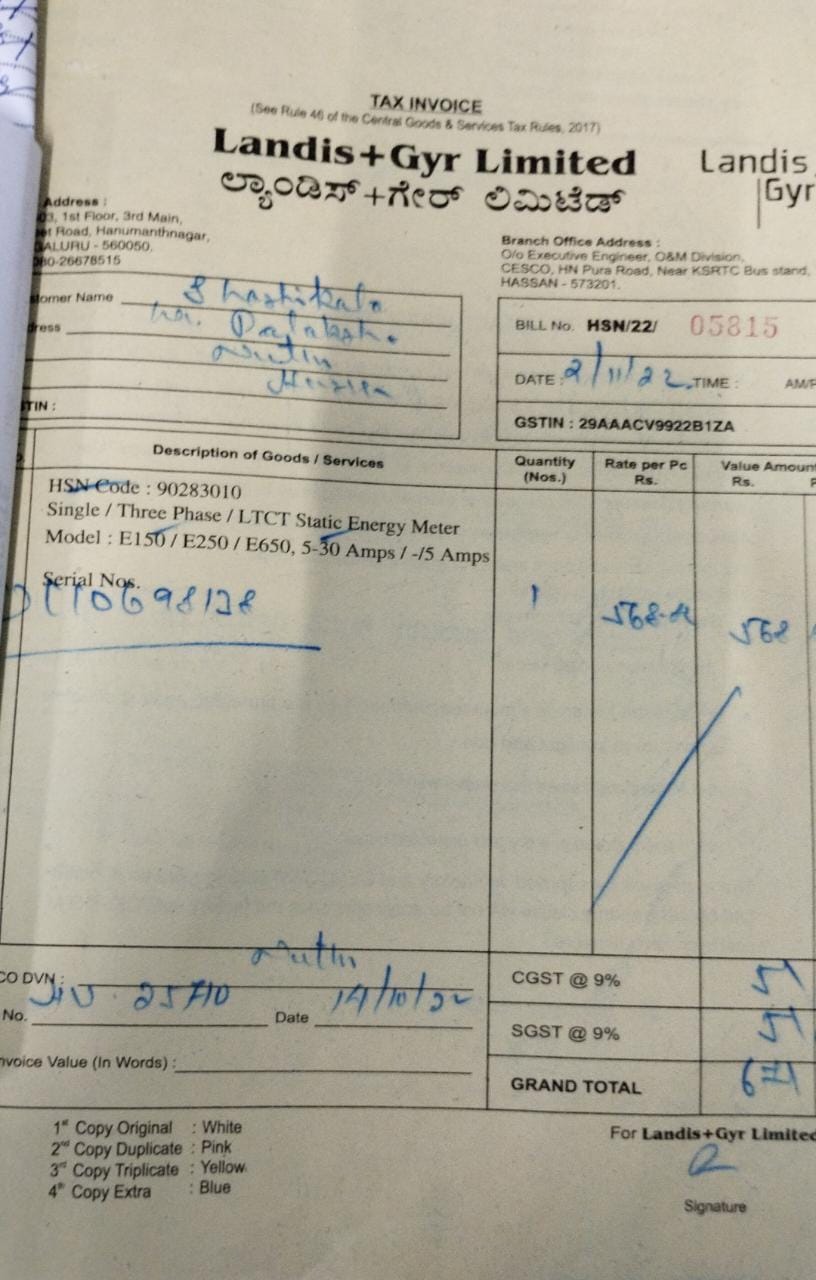 TAX INVOICE
(See Rule 46 of the Central Goods & Services Tax Rules, 2017)
Landis+Gyr Limited
ಲ್ಯಾಂಡಿಸ್+ಗೇರ್ ಲಿಮಿಟೆಡ್
Landis
Gyr
Address :
1st Floor, 3rd Main,
Road, Hanumanthnagar,
ALURU - 560050.
80-26678515
Branch Office Address :
O/o Executive Engineer, O&M Division,
CESCO, HN Pura Road, Near KSRTC Bus stand,
HASSAN - 573201.
tomer Name Shashikala
ress
TIN :
BILL No. HSN/22/ 05815
DATE : 2/11/22 TIME : AM/P
GSTIN : 29AAACV9922B1ZA
Description of Goods / Services
Quantity (Nos.)
Rate per Pc Rs.
Value Amount Rs. P
HSN Code : 90283010
Single / Three Phase / LTCT Static Energy Meter
Model : E150 / E250 / E650, 5-30 Amps / -/5 Amps
Serial Nos.
10698128
1
568
568
CO DVN :
No. 25710 Date 14/10/22
nvoice Value (In Words) :
CGST @ 9% 51
SGST @ 9% 51
GRAND TOTAL 671
1st Copy Original : White
2nd Copy Duplicate : Pink
3rd Copy Triplicate : Yellow
4th Copy Extra : Blue
For Landis+Gyr Limited
Signature